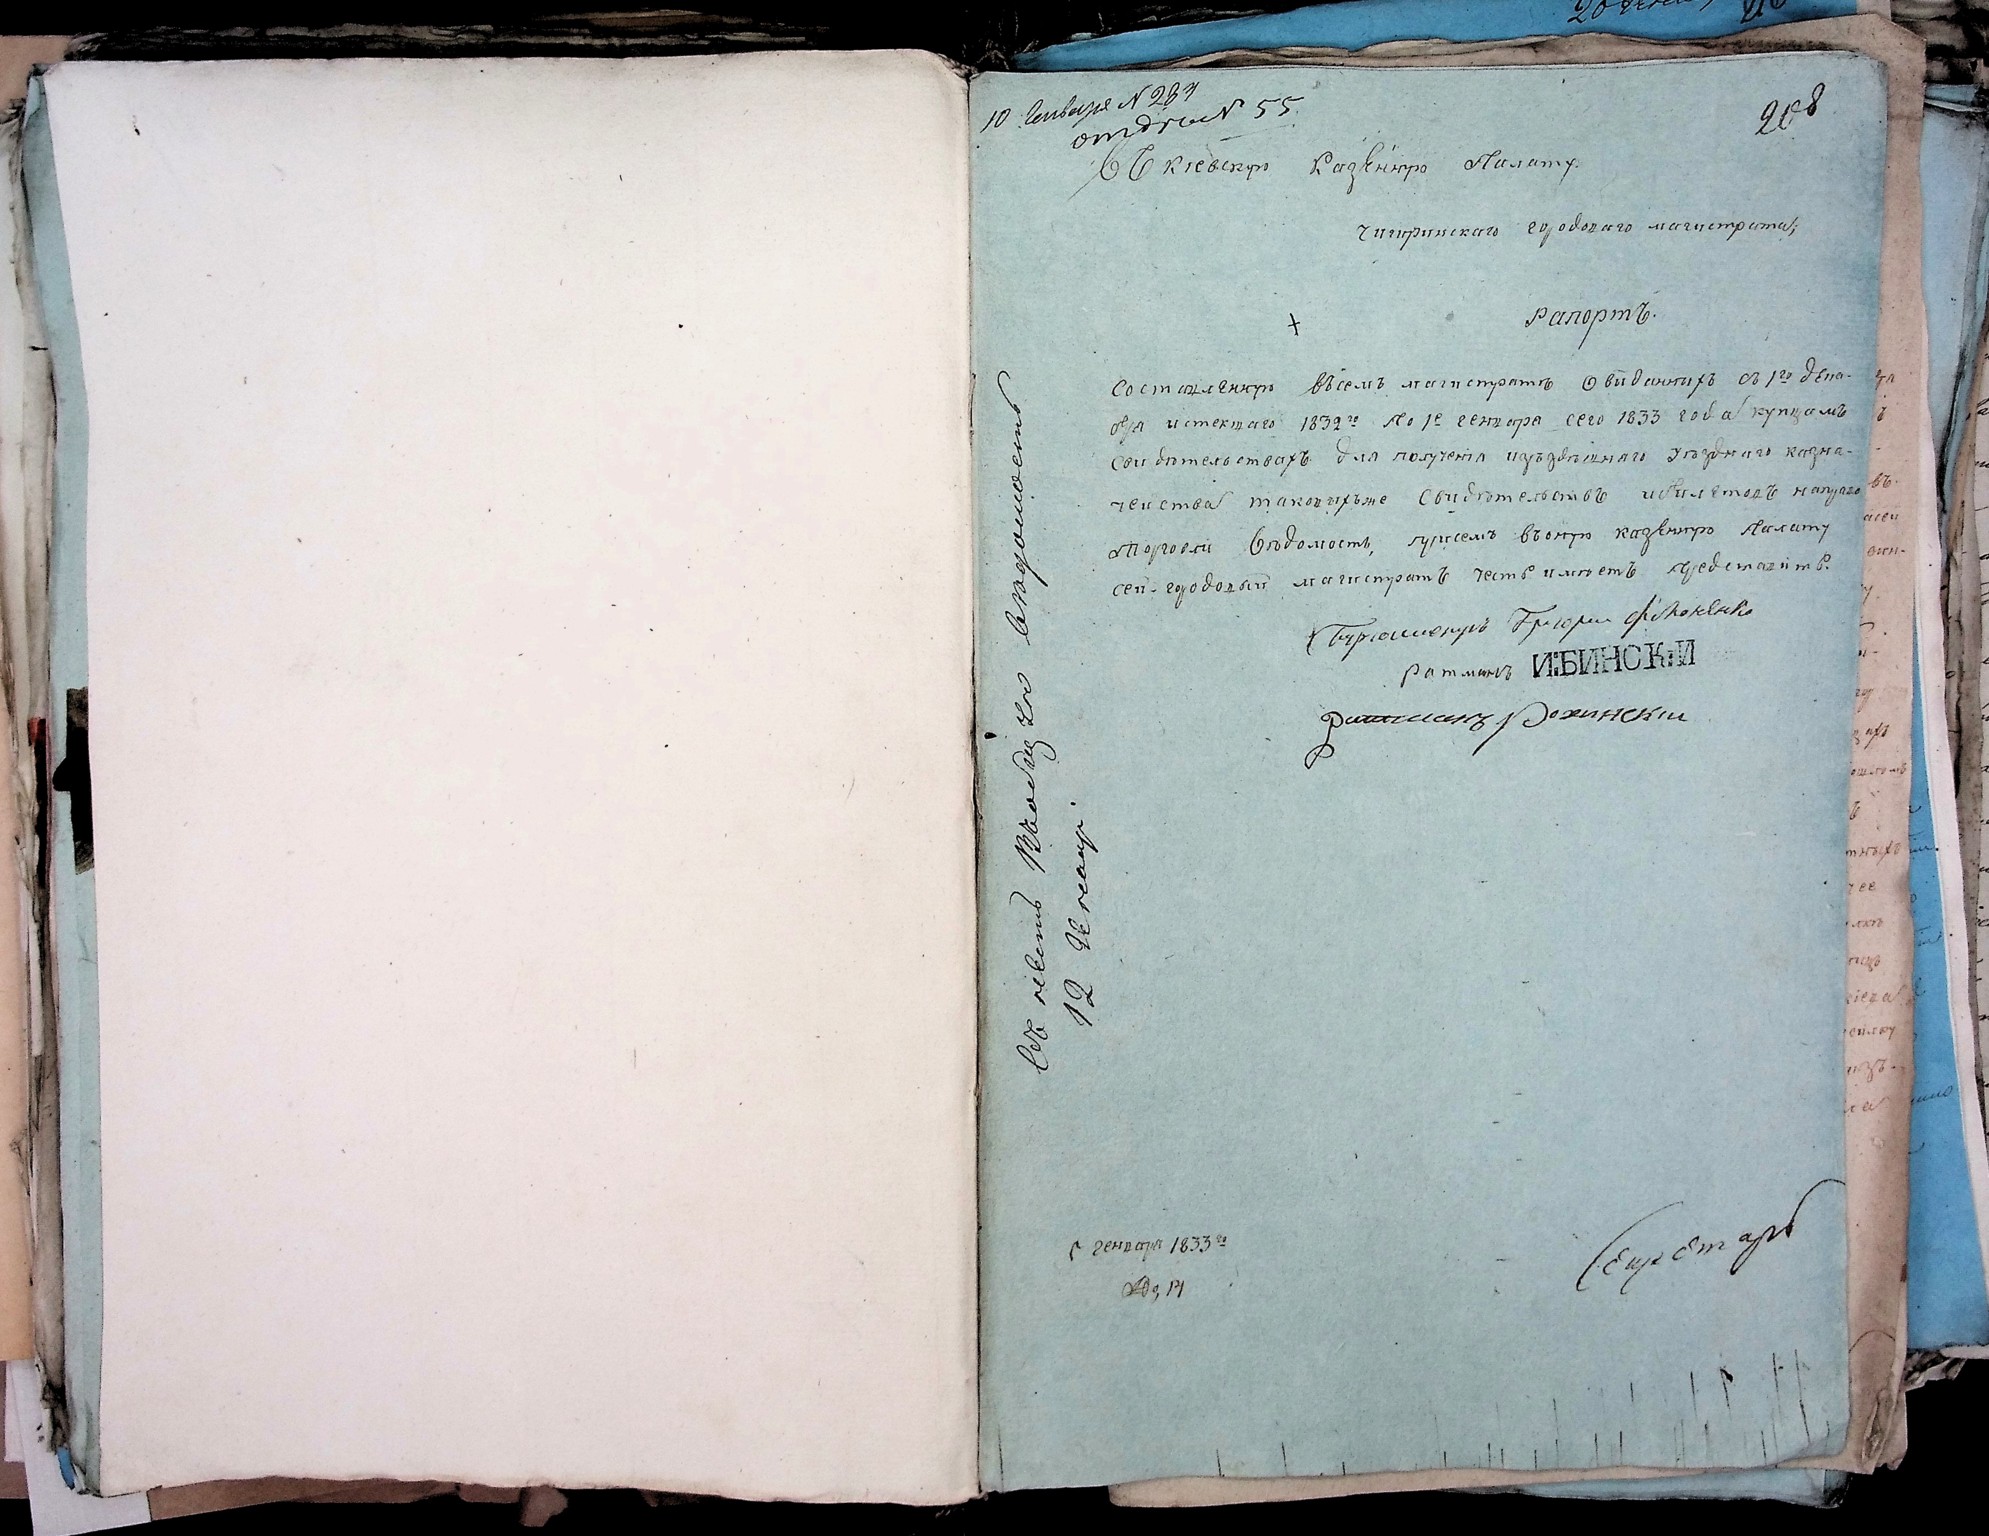 10 Генваря № 287
отдел № 55
208
Въ Киевскую Казенную Палату.
Чигиринскаго городоваго магистрата,
Рапортъ.
Составленную въсемъ магистратѣ Овиданныхъ съ 1го дека-
бря истекшаго 1832го По 1е генваря сего 1833 года купцамъ
свидѣтельствахъ для получения изъздѣшнаго уѣзднаго казна-
чейства таковыхъже свидѣтельствъ ибилетовъ направо
Торговли Вѣдомость, присемъ въоную казенную Палату
сей городовый магистратъ честь имѣетъ представить.
Бургомистръ Григорий
Ратманъ И:БИНСК:И
Ратманъ Рохинский
вѣдомость
12 Генваря
генваря 1833го
№ 14
Секретарь